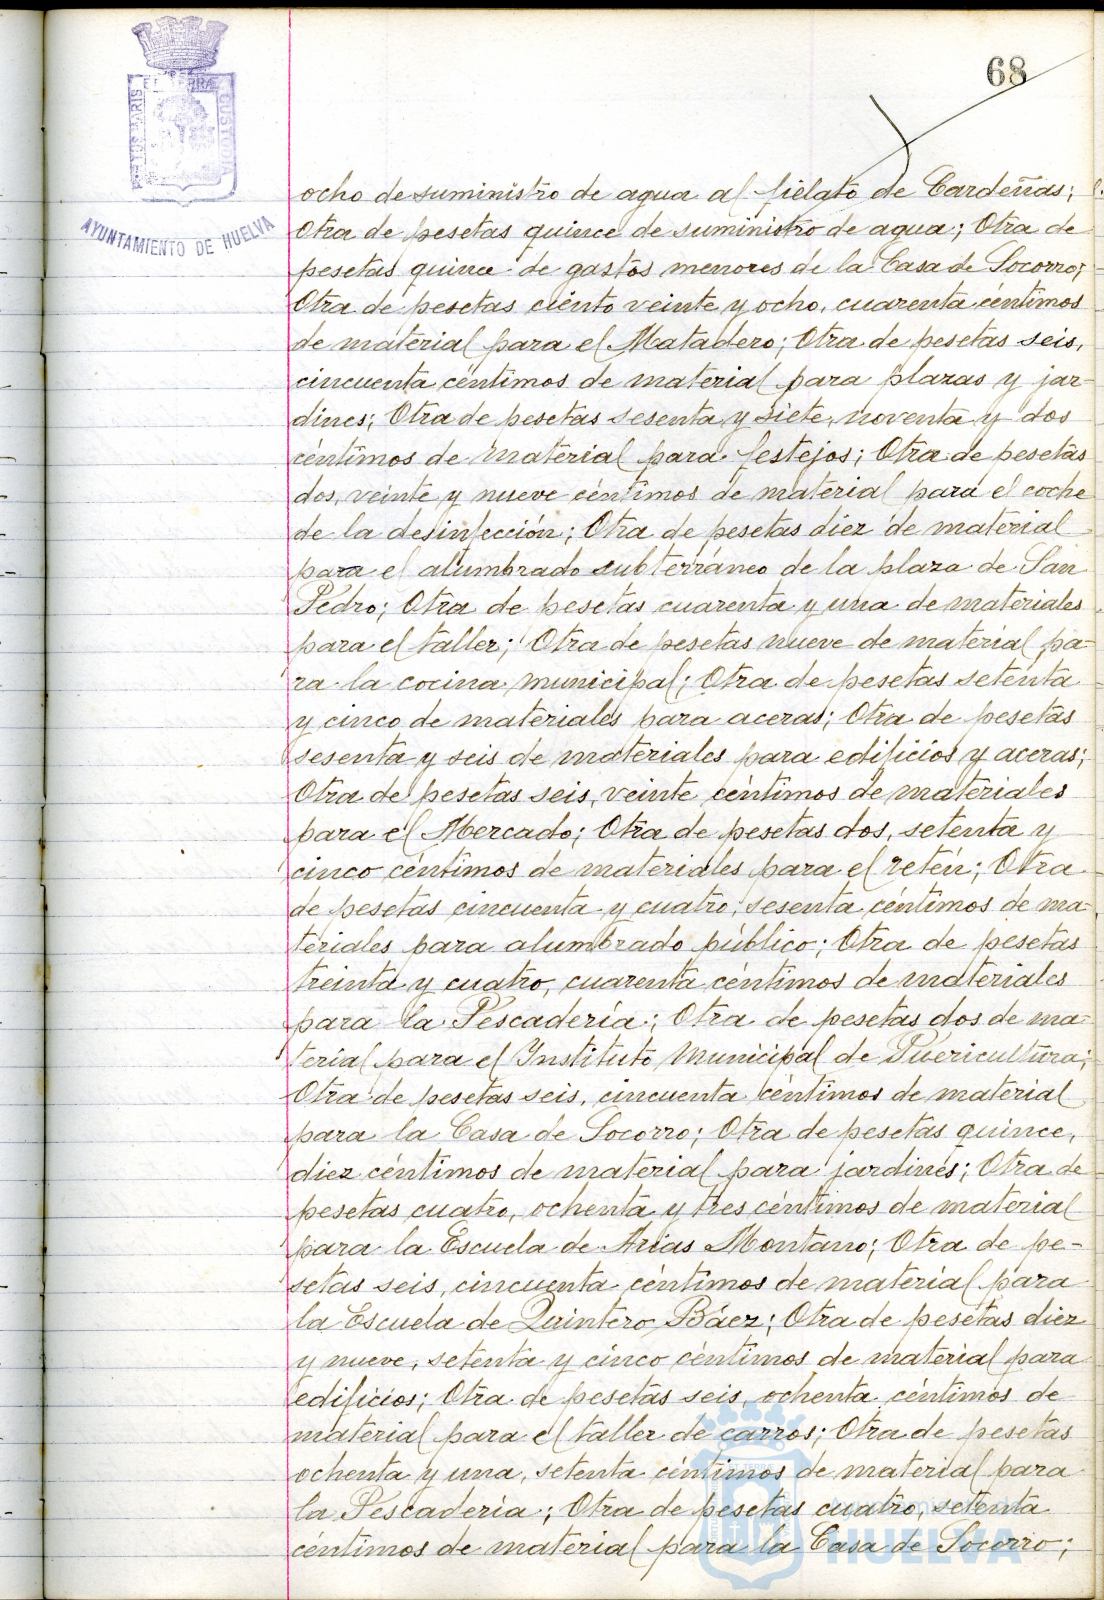 68
PORTUS MARIS ET TERRÆ CUSTODIA
AYUNTAMIENTO DE HUELVA
ocho de suministro de agua al fielato de Cardeñas;
Otra de pesetas quince de suministro de agua; Otra de
pesetas quince de gastos menores de la Casa de Socorro;
Otra de pesetas ciento veinte y ocho, cuarenta céntimos
de material para el Matadero; Otra de pesetas seis,
cincuenta céntimos de material para plazas y jar-
dines; Otra de pesetas sesenta y siete, noventa y dos
céntimos de material para festejos; Otra de pesetas
dos, veinte y nueve céntimos de material para el coche
de la desinfección; Otra de pesetas diez de material
para el alumbrado subterráneo de la plaza de San
Pedro; Otra de pesetas cuarenta y una de materiales
para el taller; Otra de pesetas nueve de material pa-
ra la cocina municipal; Otra de pesetas setenta
y cinco de materiales para aceras; Otra de pesetas
sesenta y seis de materiales para edificios y aceras;
Otra de pesetas seis, veinte céntimos de materiales
para el Mercado; Otra de pesetas dos, setenta y
cinco céntimos de materiales para el retén; Otra
de pesetas cincuenta y cuatro, sesenta céntimos de ma-
teriales para alumbrado público; Otra de pesetas
treinta y cuatro, cuarenta céntimos de materiales
para la Pescadería; Otra de pesetas dos de ma-
terial para el Instituto Municipal de Puericultura;
Otra de pesetas seis, cincuenta céntimos de material
para la Casa de Socorro; Otra de pesetas quince,
diez céntimos de material para jardines; Otra de
pesetas cuatro, ochenta y tres céntimos de material
para la Escuela de Arias Montano; Otra de pe-
setas seis, cincuenta céntimos de material para
la Escuela de Quintero Báez; Otra de pesetas diez
y nueve, setenta y cinco céntimos de material para
edificios; Otra de pesetas seis, ochenta céntimos de
material para el taller de carros; Otra de pesetas
ochenta y una, setenta céntimos de material para
la Pescadería; Otra de pesetas cuatro, setenta
céntimos de material para la Casa de Socorro;
HUELVA